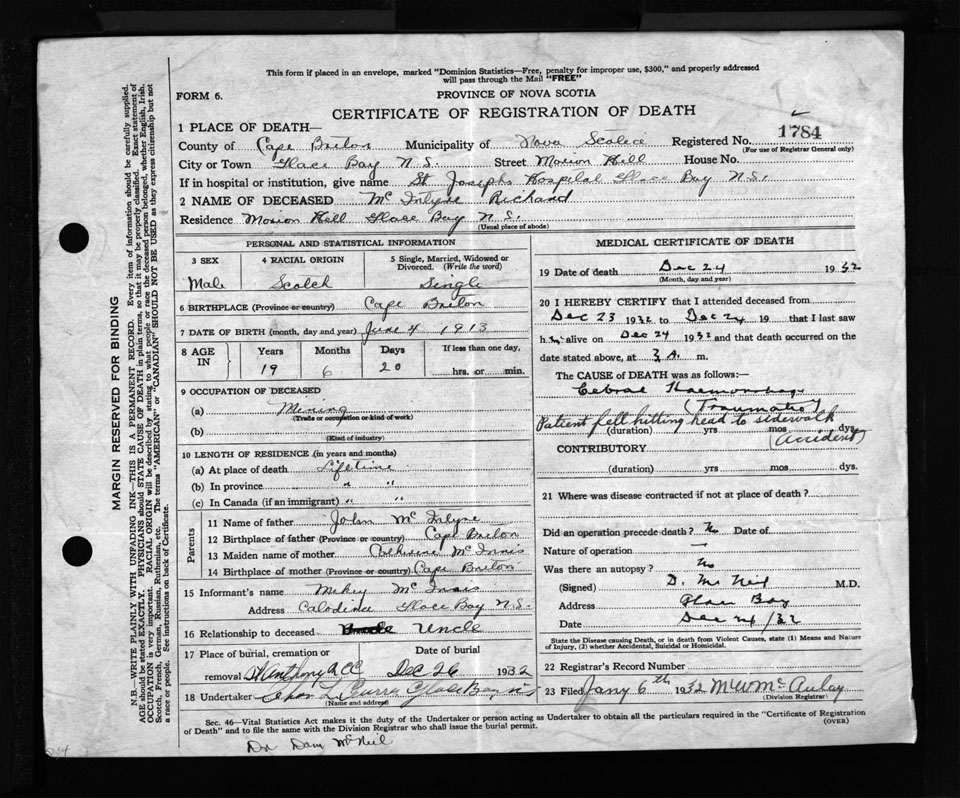 This form if placed in an envelope, marked "Dominion Statistics—Free, penalty for improper use, $300," and properly addressed
will pass through the Mail "FREE"
FORM 6.
PROVINCE OF NOVA SCOTIA
CERTIFICATE OF REGISTRATION OF DEATH
1 PLACE OF DEATH—
County of Cape Breton Municipality of Nova Scotia Registered No. 1784
(For use of Registrar General only)
City or Town Glace Bay N.S. Street Morion Hill House No.
If in hospital or institution, give name St Josephs Hospital Glace Bay N.S.
2 NAME OF DECEASED Mc Intyre Richard
Residence Morion Hill Glace Bay N.S.
(Usual place of abode)
PERSONAL AND STATISTICAL INFORMATION
3 SEX 4 RACIAL ORIGIN 5 Single, Married, Widowed or Divorced. (Write the word)
Male Scotch Single
6 BIRTHPLACE (Province or country) Cape Breton
7 DATE OF BIRTH (month, day and year) June 4 1913
8 AGE IN Years Months Days If less than one day,
19 6 20 hrs. or min.
9 OCCUPATION OF DECEASED
(a) Mining
(Trade or occupation or kind of work)
(b)
(Kind of industry)
10 LENGTH OF RESIDENCE (in years and months)
(a) At place of death Lifetime
(b) In province " "
(c) In Canada (if an immigrant) " "
Parents
11 Name of father John Mc Intyre
12 Birthplace of father (Province or country) Cape Breton
13 Maiden name of mother Catherine Mc Innis
14 Birthplace of mother (Province or country) Cape Breton
15 Informant's name Mc Innis
Address Glace Bay N.S.
16 Relationship to deceased Uncle Uncle
17 Place of burial, cremation or removal Date of burial
St Anthony Dec 26 1932
18 Undertaker Glace Bay
(Name and address)
MEDICAL CERTIFICATE OF DEATH
19 Date of death Dec 24 1932
(Month, day and year)
20 I HEREBY CERTIFY that I attended deceased from
Dec 23 1932 to Dec 24 19 that I last saw
h im alive on Dec 24 1932 and that death occurred on the
date stated above, at 3 a. m.
The CAUSE of DEATH was as follows:
Haemorrhage
(Traumatic)
Patient fell hitting head to sidewalk
(duration) yrs mos dys
(Accident)
CONTRIBUTORY
(duration) yrs mos dys.
21 Where was disease contracted if not at place of death?
Did an operation precede death? No Date of
Nature of operation —
Was there an autopsy? No
(Signed) D. Mc Neil M.D.
Address Glace Bay
Date Dec 24/32
State the Disease causing Death, or in death from Violent Causes, state (1) Means and Nature
of Injury, (2) whether Accidental, Suicidal or Homicidal.
22 Registrar's Record Number
23 Filed Jany 6th 1932 M W McAulay
Division Registrar)
Sec. 46—Vital Statistics Act makes it the duty of the Undertaker or person acting as Undertaker to obtain all the particulars required in the "Certificate of Registration
of Death" and to file the same with the Division Registrar who shall issue the burial permit.
(OVER)
Dr Dan McNeil
MARGIN RESERVED FOR BINDING
N.B.—WRITE PLAINLY WITH UNFADING INK—THIS IS A PERMANENT RECORD. Every item of information should be carefully supplied.
AGE should be stated EXACTLY. PHYSICIANS should STATE CAUSE OF DEATH in plain terms, so that it may be properly classified. Exact statement of
OCCUPATION is very important. RACIAL ORIGIN will be described by stating to what people or race the deceased person belonged, whether English, Irish,
Scotch, French, German, Russian, Ruthenian, etc. The terms "AMERICAN" or "CANADIAN" SHOULD NOT BE USED as they express citizenship but not
a race or people. See instructions on back of Certificate.